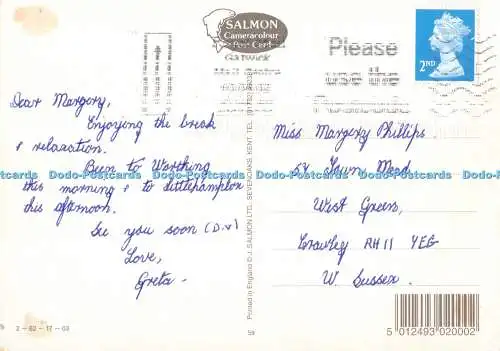 SALMON
Cameracolour
Post Card
Gatwick
Please
use
2ND
Dear Margery,
Enjoying the break
& relaxation.
Been to Worthing
this morning & to Littlehampton
this afternoon.
See you soon (D.V)
Love,
Greta.
Miss Margery Phillips
Mead,
West Green,
Crawley RH11 7EG
W. Sussex.
Printed in England © J. SALMON LTD., SEVENOAKS, KENT
2-62-17-03
5 012493 020002
Dodo-Postcards Dodo-Postcards Dodo-Postcards Dodo-Postcards